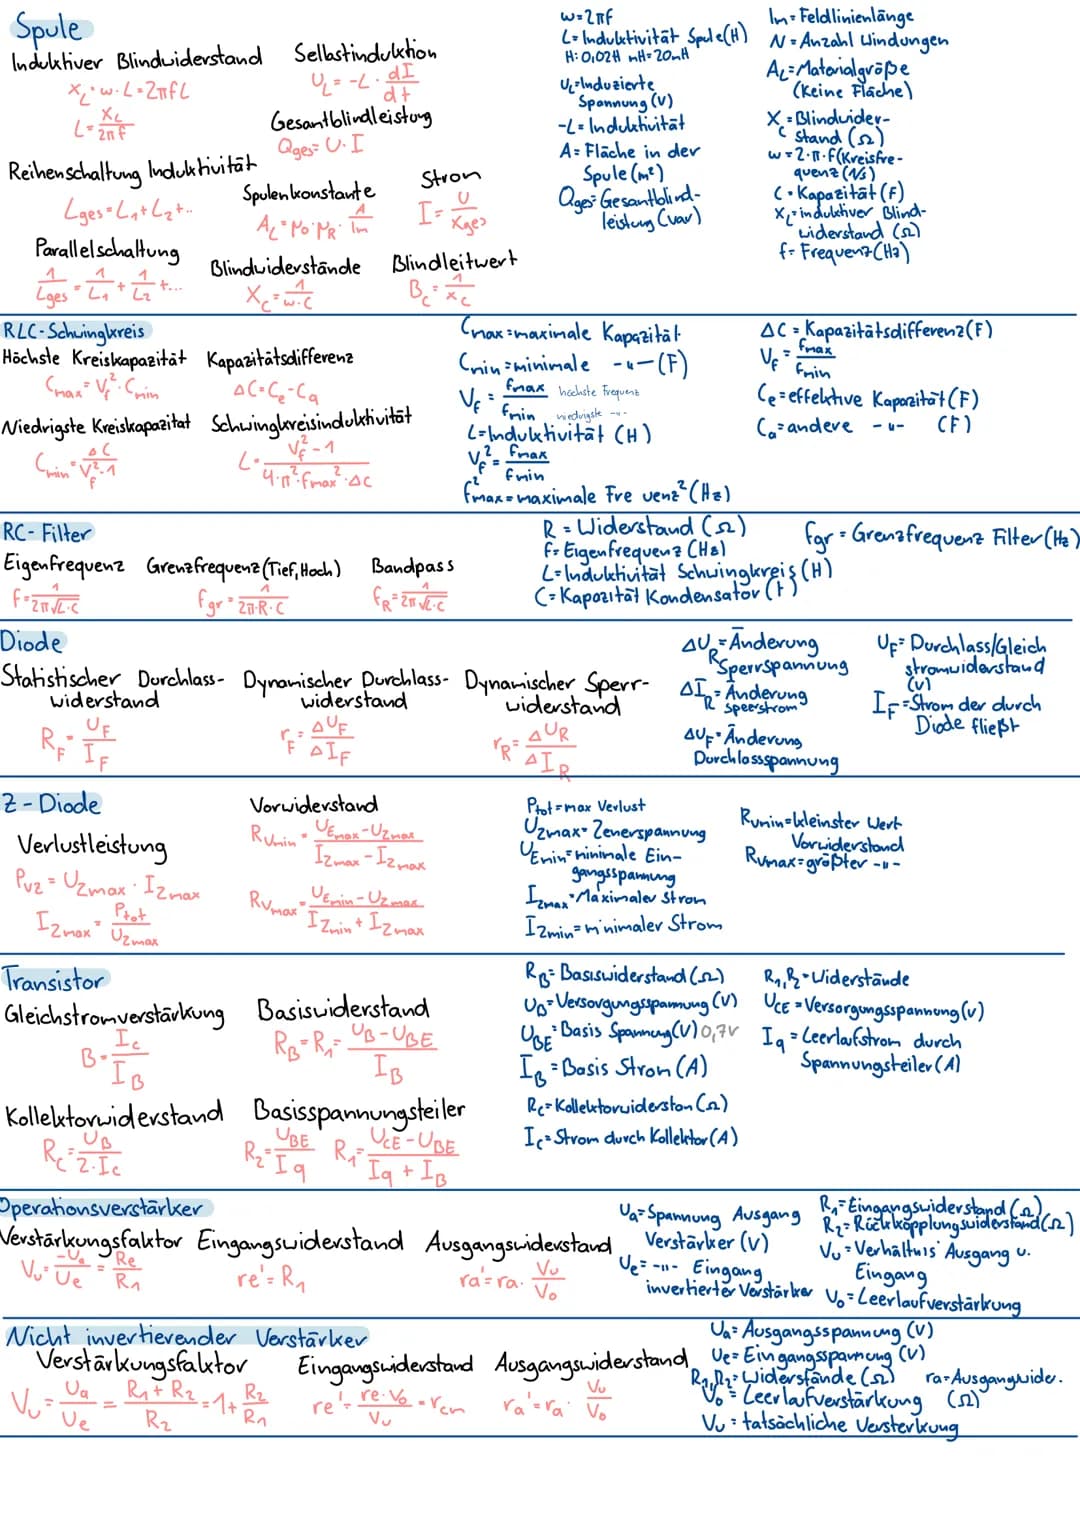 Spule
Induktiver Blindwiderstand
X_L = w·L = 2πfL
L = X_L / 2πf
Selbstinduktion
U_L = -L · dI/dt
Gesamtblindleistung
Qges = U·I
Reihenschaltung Induktivität
Lges = L₁+L₂+..
Spulenkonstante
A_L = μ₀·μ_R · A/lm
Strom
I = U/Xges
Parallelschaltung
1/Lges = 1/L₁ + 1/L₂ +...
Blindwiderstände
X_C = 1/w·C
Blindleitwert
B_C = 1/X_C
w=2πf
L=Induktivität Spule(H)
H:0,02H mH=20mH
U_L=Induzierte
Spannung (V)
-L=Induktivität
A=Fläche in der
Spule(m²)
Qges=Gesamtblind-
leistung (var)
lm=Feldlinienlänge
N=Anzahl Windungen
A_L=Materialgröße
(Keine Fläche)
X_C=Blindwider-
stand (Ω)
w=2·π·f(Kreisfre-
quenz (1/s)
C=Kapazität(F)
X_L=induktiver Blind-
widerstand (Ω)
f=Frequenz(Hz)
RLC-Schwingkreis
Höchste Kreiskapazität
Cmax = V_f²·Cmin
Kapazitätsdifferenz
ΔC=C_e-C_a
Niedrigste Kreiskapazitat
Cmin = ΔC / V_f²-1
Schwingkreisinduktivität
L = V_f²-1 / 4·π²·fmax²·ΔC
Cmax=maximale Kapazität
Cmin=minimale -"-(F)
V_f = fmax / fmin höchste Frequenz niedrigste -"-
L=Induktivität (H)
V_f² = fmax / fmin
f²max=maximale Fre uenz²(Hz)
ΔC=Kapazitätsdifferenz(F)
V_f = fmax / fmin
C_e=effektive Kapazität(F)
C_a=andere -"- (F)
RC-Filter
Eigenfrequenz
f = 1/2π√L·C
Grenzfrequenz(Tief,Hoch)
fgr = 1/2π·R·C
Bandpass
f_R = 1/2π√L·C
R=Widerstand (Ω)
F=Eigenfrequenz (Hz)
L=Induktivität Schwingkreis (H)
C=Kapazität Kondensator (F)
fgr=Grenzfrequenz Filter(Hz)
Diode
Statistischer Durchlass-
widerstand
R_F = U_F / I_F
Dynamischer Durchlass-
widerstand
r_F = ΔU_F / ΔI_F
Dynamischer Sperr-
widerstand
r_R = ΔU_R / ΔI_R
ΔU_R=Änderung
Sperrspannung
ΔI_R=Änderung
speerstrom
ΔU_F=Änderung
Durchlassspannung
U_F=Durchlass/Gleich
stromwiderstand
(V)
I_F=Strom der durch
Diode fließt
Z-Diode
Verlustleistung
P_VZ = U_Zmax · I_Zmax
I_Zmax = Ptot / U_Zmax
Vorwiderstand
R_Vmin = U_Emax-U_Zmax / I_Zmax-I_Zmax
R_Vmax = U_Emin-U_Zmax / I_Zmin+I_Zmax
Ptot=max Verlust
U_Zmax=Zenerspannung
U_Emin=minimale Ein-
gangsspannung
I_Zmax=Maximaler Strom
I_Zmin=minimaler Strom
Rvmin=kleinster Wert
Vorwiderstand
Rvmax=größter -"-
Transistor
Gleichstromverstärkung
B = I_C / I_B
Basiswiderstand
R_B=R₁= U_B-U_BE / I_B
Kollektorwiderstand
R_C = U_B / 2·I_C
Basisspannungsteiler
R₂ = U_BE / Iq R₁ = U_CE-U_BE / Iq+I_B
R_B=Basiswiderstand(Ω)
U_B=Versorgungsspannung (V)
U_BE=Basis Spannung(V)0,7V
I_B=Basis Strom(A)
R_C=Kollektorwiderston(Ω)
I_C=Strom durch Kollektor(A)
R₁,R₂=Widerstände
U_CE=Versorgungsspannung(V)
Iq=Leerlaufstrom durch
Spannungsteiler(A)
Operationsverstärker
Verstärkungsfaktor
Vu = -Ua/Ue = Re/R₁
Eingangswiderstand
re'=R₁
Ausgangswiderstand
ra'=ra· Vu/Vo
Ua=Spannung Ausgang
Verstärker (V)
Ue= -"- Eingang
invertierter Verstärker
R₁=Eingangswiderstand(Ω)
R₂=Rückkopplungswiderstand(Ω)
Vu=Verhältnis Ausgang u.
Eingang
Vo=Leerlaufverstärkung
Nicht invertierender Verstärker
Verstärkungsfaktor
Vu = Ua/Ue = R₁+R₂/R₂ = 1+ R₂/R₁
Eingangswiderstand
re' = re·Vo/Vu = rcm
Ausgangswiderstand
ra'=ra· Vu/Vo
Ua=Ausgangsspannung (V)
Ue=Eingangsspannung (V)
R₁,R₂=Widerstände (Ω)
Vo=Leerlaufverstärkung
Vu=tatsächliche Versterkung
ra=Ausgangwider.
(Ω)